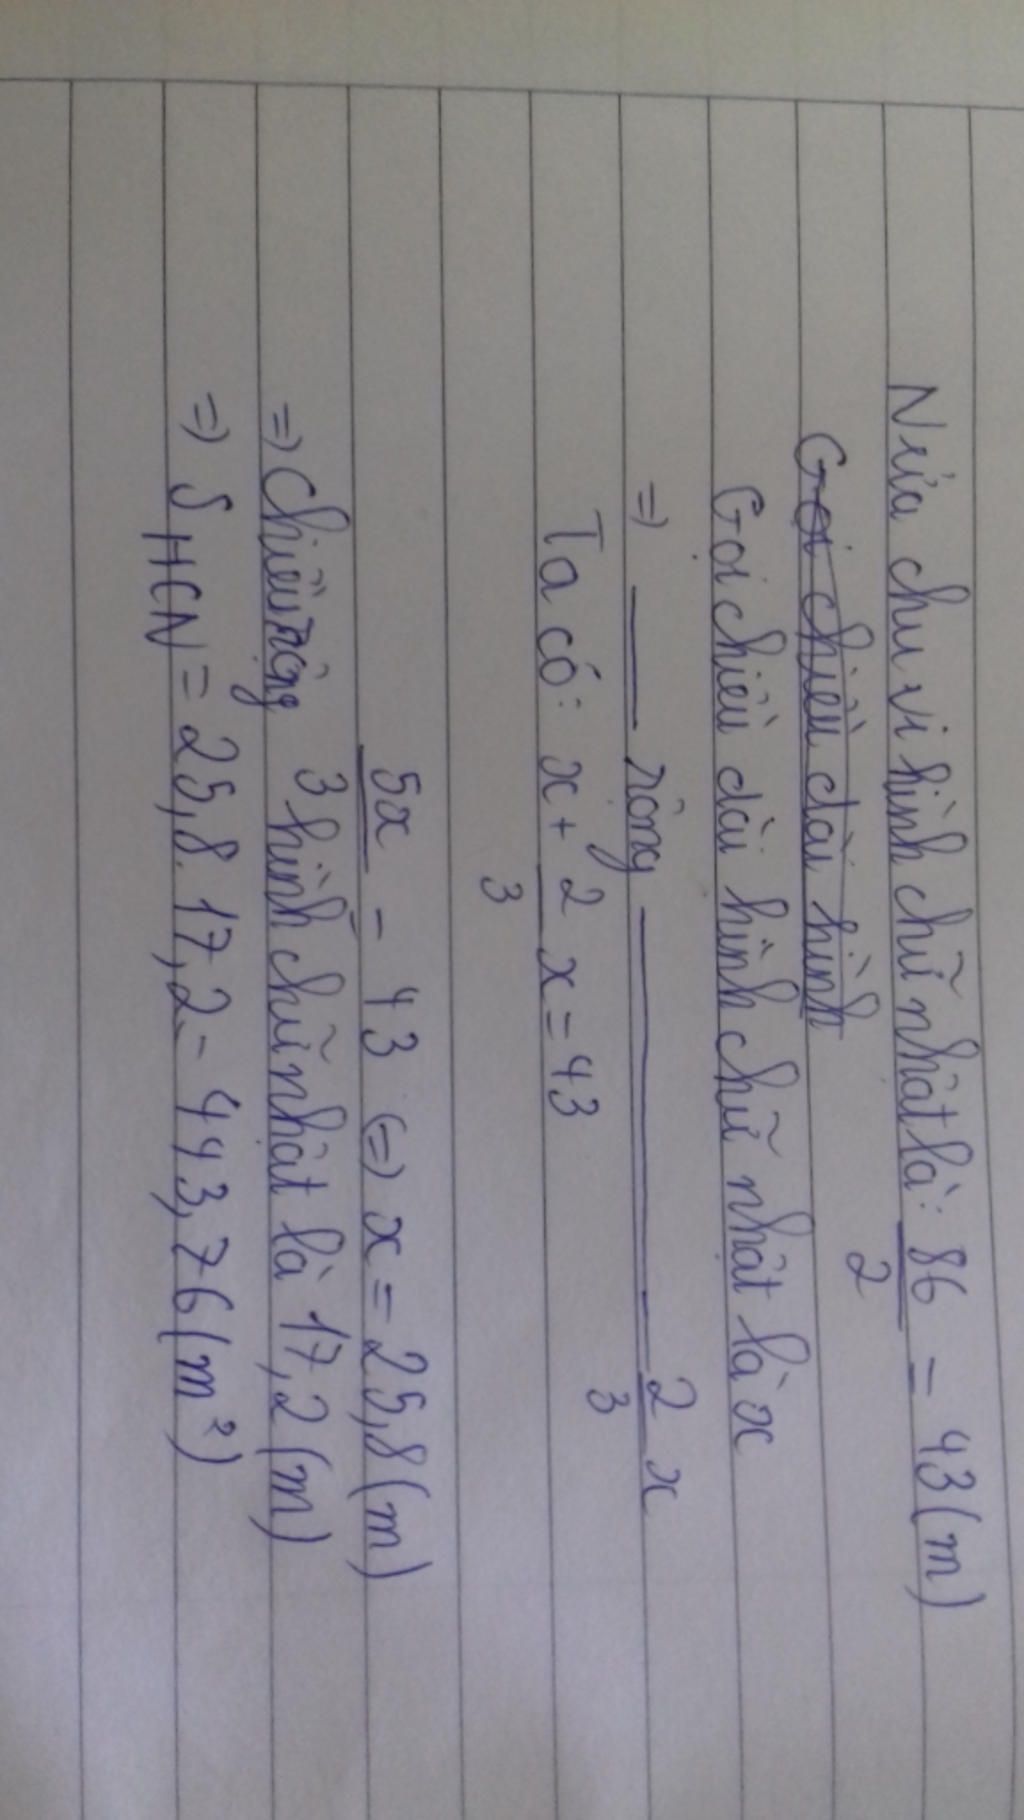 Nửa chu vi hình chữ nhật là: 86/2 = 43(m)
Gọi chiều dài hình
Gọi chiều dài hình chữ nhật là x
=> ____ rộng ________ 2/3 x
Ta có: x + 2/3 x = 43
5x/3 = 43 <=> x = 25,8(m)
=> Chiều rộng hình chữ nhật là 17,2(m)
=> S HCN = 25,8. 17,2 = 443,76(m²)